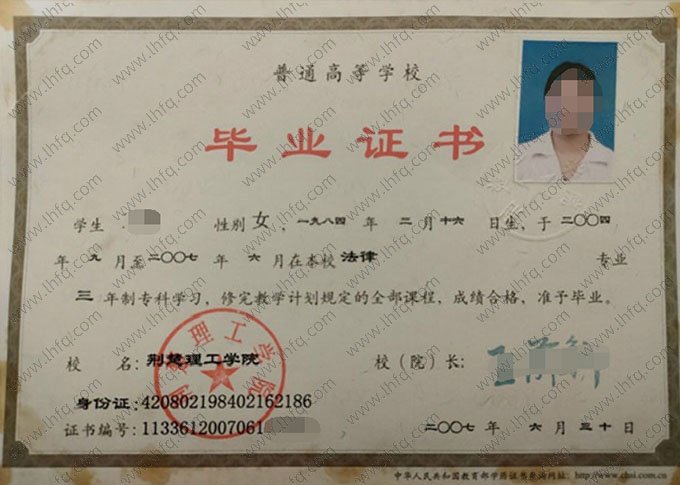 普通高等学校
毕业证书
学生 性别 女，一九八四 年 二 月 十六 日生，于 二〇〇四
年 九 月至 二〇〇七 年 六 月在本校 法律 专业
三 年制专科学习，修完教学计划规定的全部课程，成绩合格，准予毕业。
校 名：荆楚理工学院
校（院）长：
荆楚理工学院
身份证：420802198402162186
证书编号：1133612007061
二〇〇七 年 六 月 三十 日
中华人民共和国教育部学历证书查询网址：http://www.chsi.com.cn
www.lhfq.com